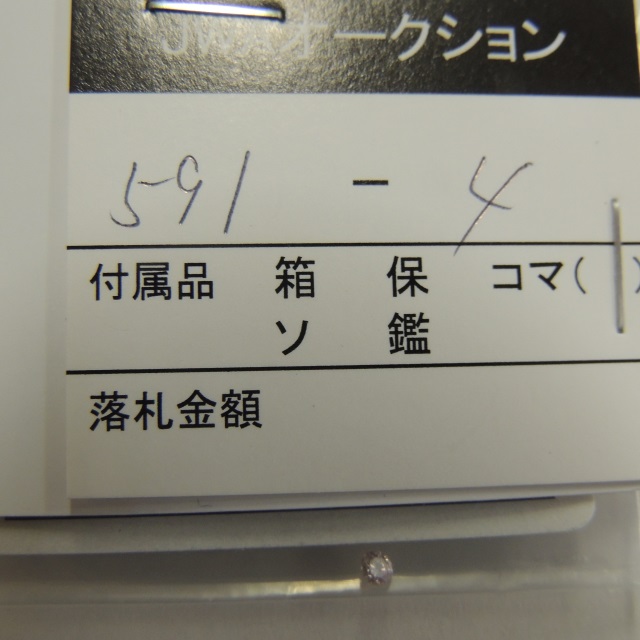 オークション
591 - 4
付属品 箱 保 コマ(
ソ 鑑
落札金額